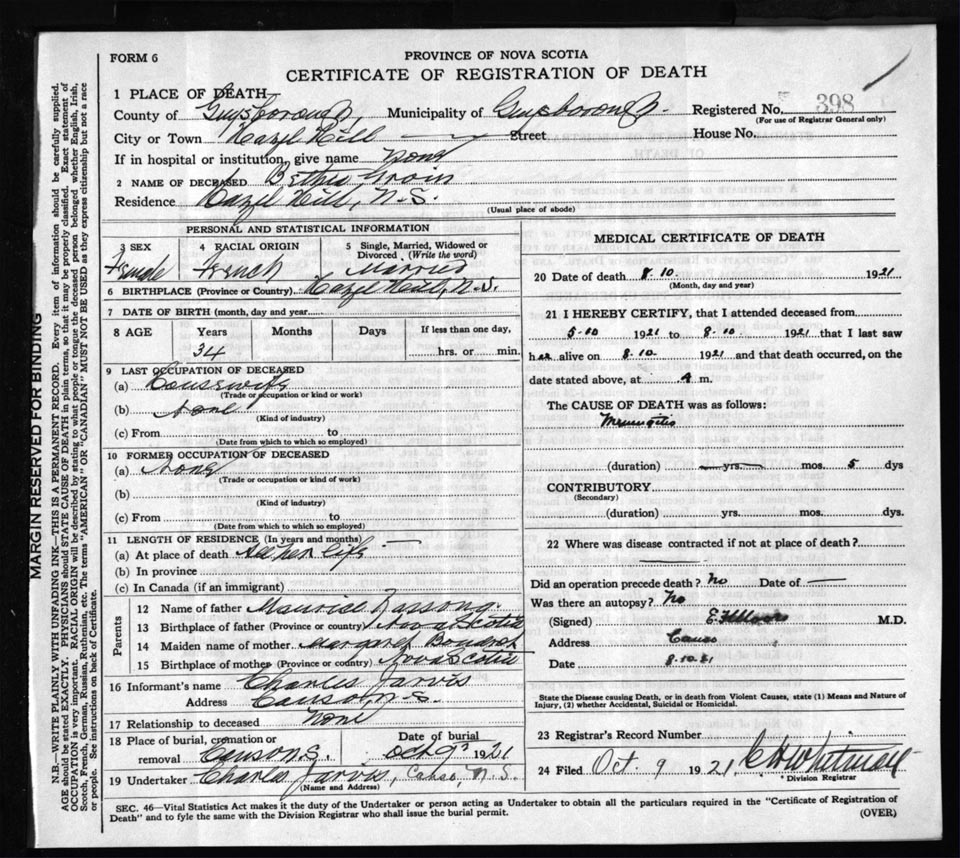 FORM 6
PROVINCE OF NOVA SCOTIA
CERTIFICATE OF REGISTRATION OF DEATH
1 PLACE OF DEATH
County of Guysborough, Municipality of Guysborough. Registered No. 398
(For use of Registrar General only)
City or Town Hazel Hill Street House No.
If in hospital or institution, give name None
2 NAME OF DECEASED Bethia
Residence Hazel Hill, N.S.
(Usual place of abode)
PERSONAL AND STATISTICAL INFORMATION
3 SEX 4 RACIAL ORIGIN 5 Single, Married, Widowed or Divorced (Write the word)
Female French Married
6 BIRTHPLACE (Province or Country) Hazel Hill, N.S.
7 DATE OF BIRTH (month, day and year)
8 AGE Years Months Days If less than one day,
34 hrs. or min.
9 LAST OCCUPATION OF DECEASED
(a) Housewife
(Trade or occupation or kind or work)
(b) None
(Kind of industry)
(c) From to
(Date from which to which so employed)
10 FORMER OCCUPATION OF DECEASED
(a) None
(Trade or occupation or kind of work)
(b)
(Kind of industry)
(c) From to
(Date from which to which so employed)
11 LENGTH OF RESIDENCE (In years and months)
(a) At place of death All her life
(b) In province
(c) In Canada (if an immigrant)
Parents
12 Name of father Maurice
13 Birthplace of father (Province or country) Nova Scotia
14 Maiden name of mother Margaret
15 Birthplace of mother (Province or country) Nova Scotia
16 Informant's name Charles Jarvis
Address Canso, N.S.
17 Relationship to deceased None
18 Place of burial, cremation or removal Canso N.S. Date of burial Oct 9 1921
19 Undertaker Charles Jarvis, Canso, N.S.
(Name and Address)
MEDICAL CERTIFICATE OF DEATH
20 Date of death 8.10. 1921
(Month, day and year)
21 I HEREBY CERTIFY, that I attended deceased from
5-10 1921 to 8.10. 1921 that I last saw
her alive on 8.10. 1921 and that death occurred, on the
date stated above, at A m.
The CAUSE OF DEATH was as follows:
Meningitis
(duration) yrs. mos. 5 dys
CONTRIBUTORY
(Secondary)
(duration) yrs. mos. dys.
22 Where was disease contracted if not at place of death?
Did an operation precede death? No Date of
Was there an autopsy? No
(Signed) M.D.
Address Canso
Date 8.10.21
State the Disease causing Death, or in death from Violent Causes, state (1) Means and Nature of
Injury, (2) whether Accidental, Suicidal or Homicidal.
23 Registrar's Record Number
24 Filed Oct. 9 1921. Whitman
Division Registrar
SEC. 46—Vital Statistics Act makes it the duty of the Undertaker or person acting as Undertaker to obtain all the particulars required in the "Certificate of Registration of
Death" and to fyle the same with the Division Registrar who shall issue the burial permit.
(OVER)
MARGIN RESERVED FOR BINDING
N.B.—WRITE PLAINLY WITH UNFADING INK—THIS IS A PERMANENT RECORD. Every item of information should be carefully supplied.
AGE should be stated EXACTLY. PHYSICIANS should STATE CAUSE OF DEATH in plain terms, so that it may be properly classified. Exact statement of
OCCUPATION is very important. RACIAL ORIGIN will be described by stating to what people or tongue the deceased person belonged whether English, Irish,
Scotch, French, German, Russian, Ruthenian, etc. The terms "AMERICAN" OR "CANADIAN" MUST NOT BE USED as they express citizenship but not a race
or people. See instructions on back of Certificate.